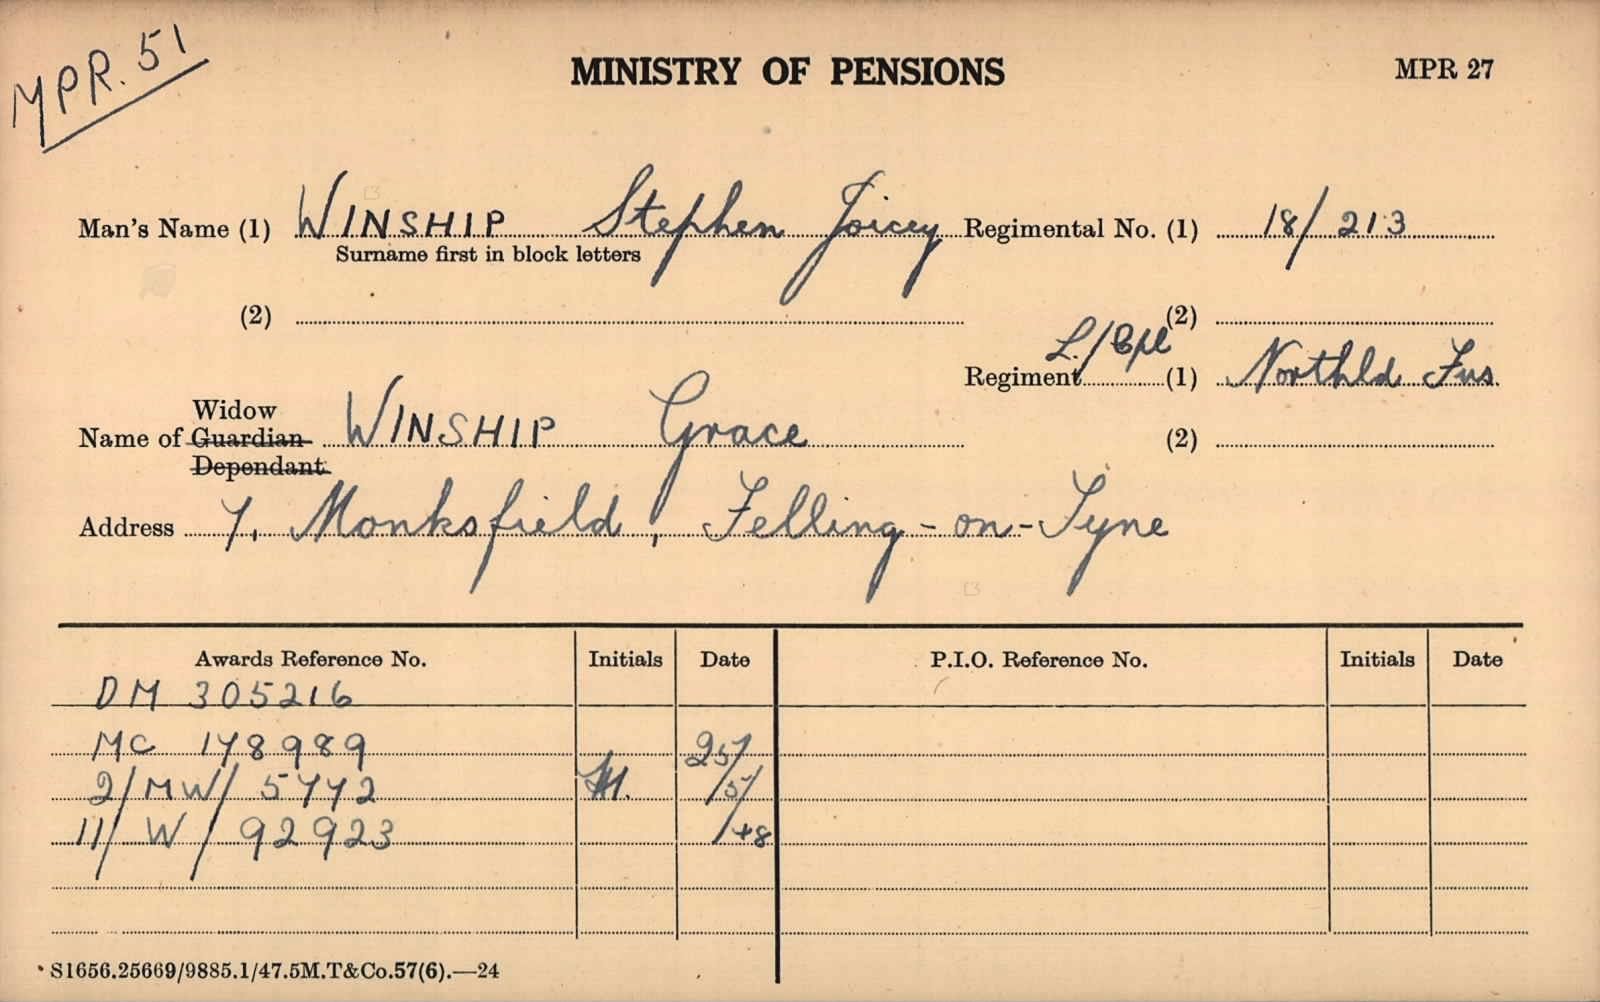 MPR. 51
MINISTRY OF PENSIONS
MPR 27
Man's Name (1) WINSHIP Stephen Joicey Regimental No. (1) 18/213
Surname first in block letters
(2) (2)
L./Cpl
Regiment (1) Northld Fus.
Widow
Name of Guardian WINSHIP Grace (2)
Dependant
Address 7, Monksfield, Felling-on-Tyne
Awards Reference No. Initials Date P.I.O. Reference No. Initials Date
DM 305216
MC 178989 25/
2/MW/ 5772 /5/
11/ W / 92923 /48
S1656.25669/9885.1/47.5M.T&Co.57(6).—24